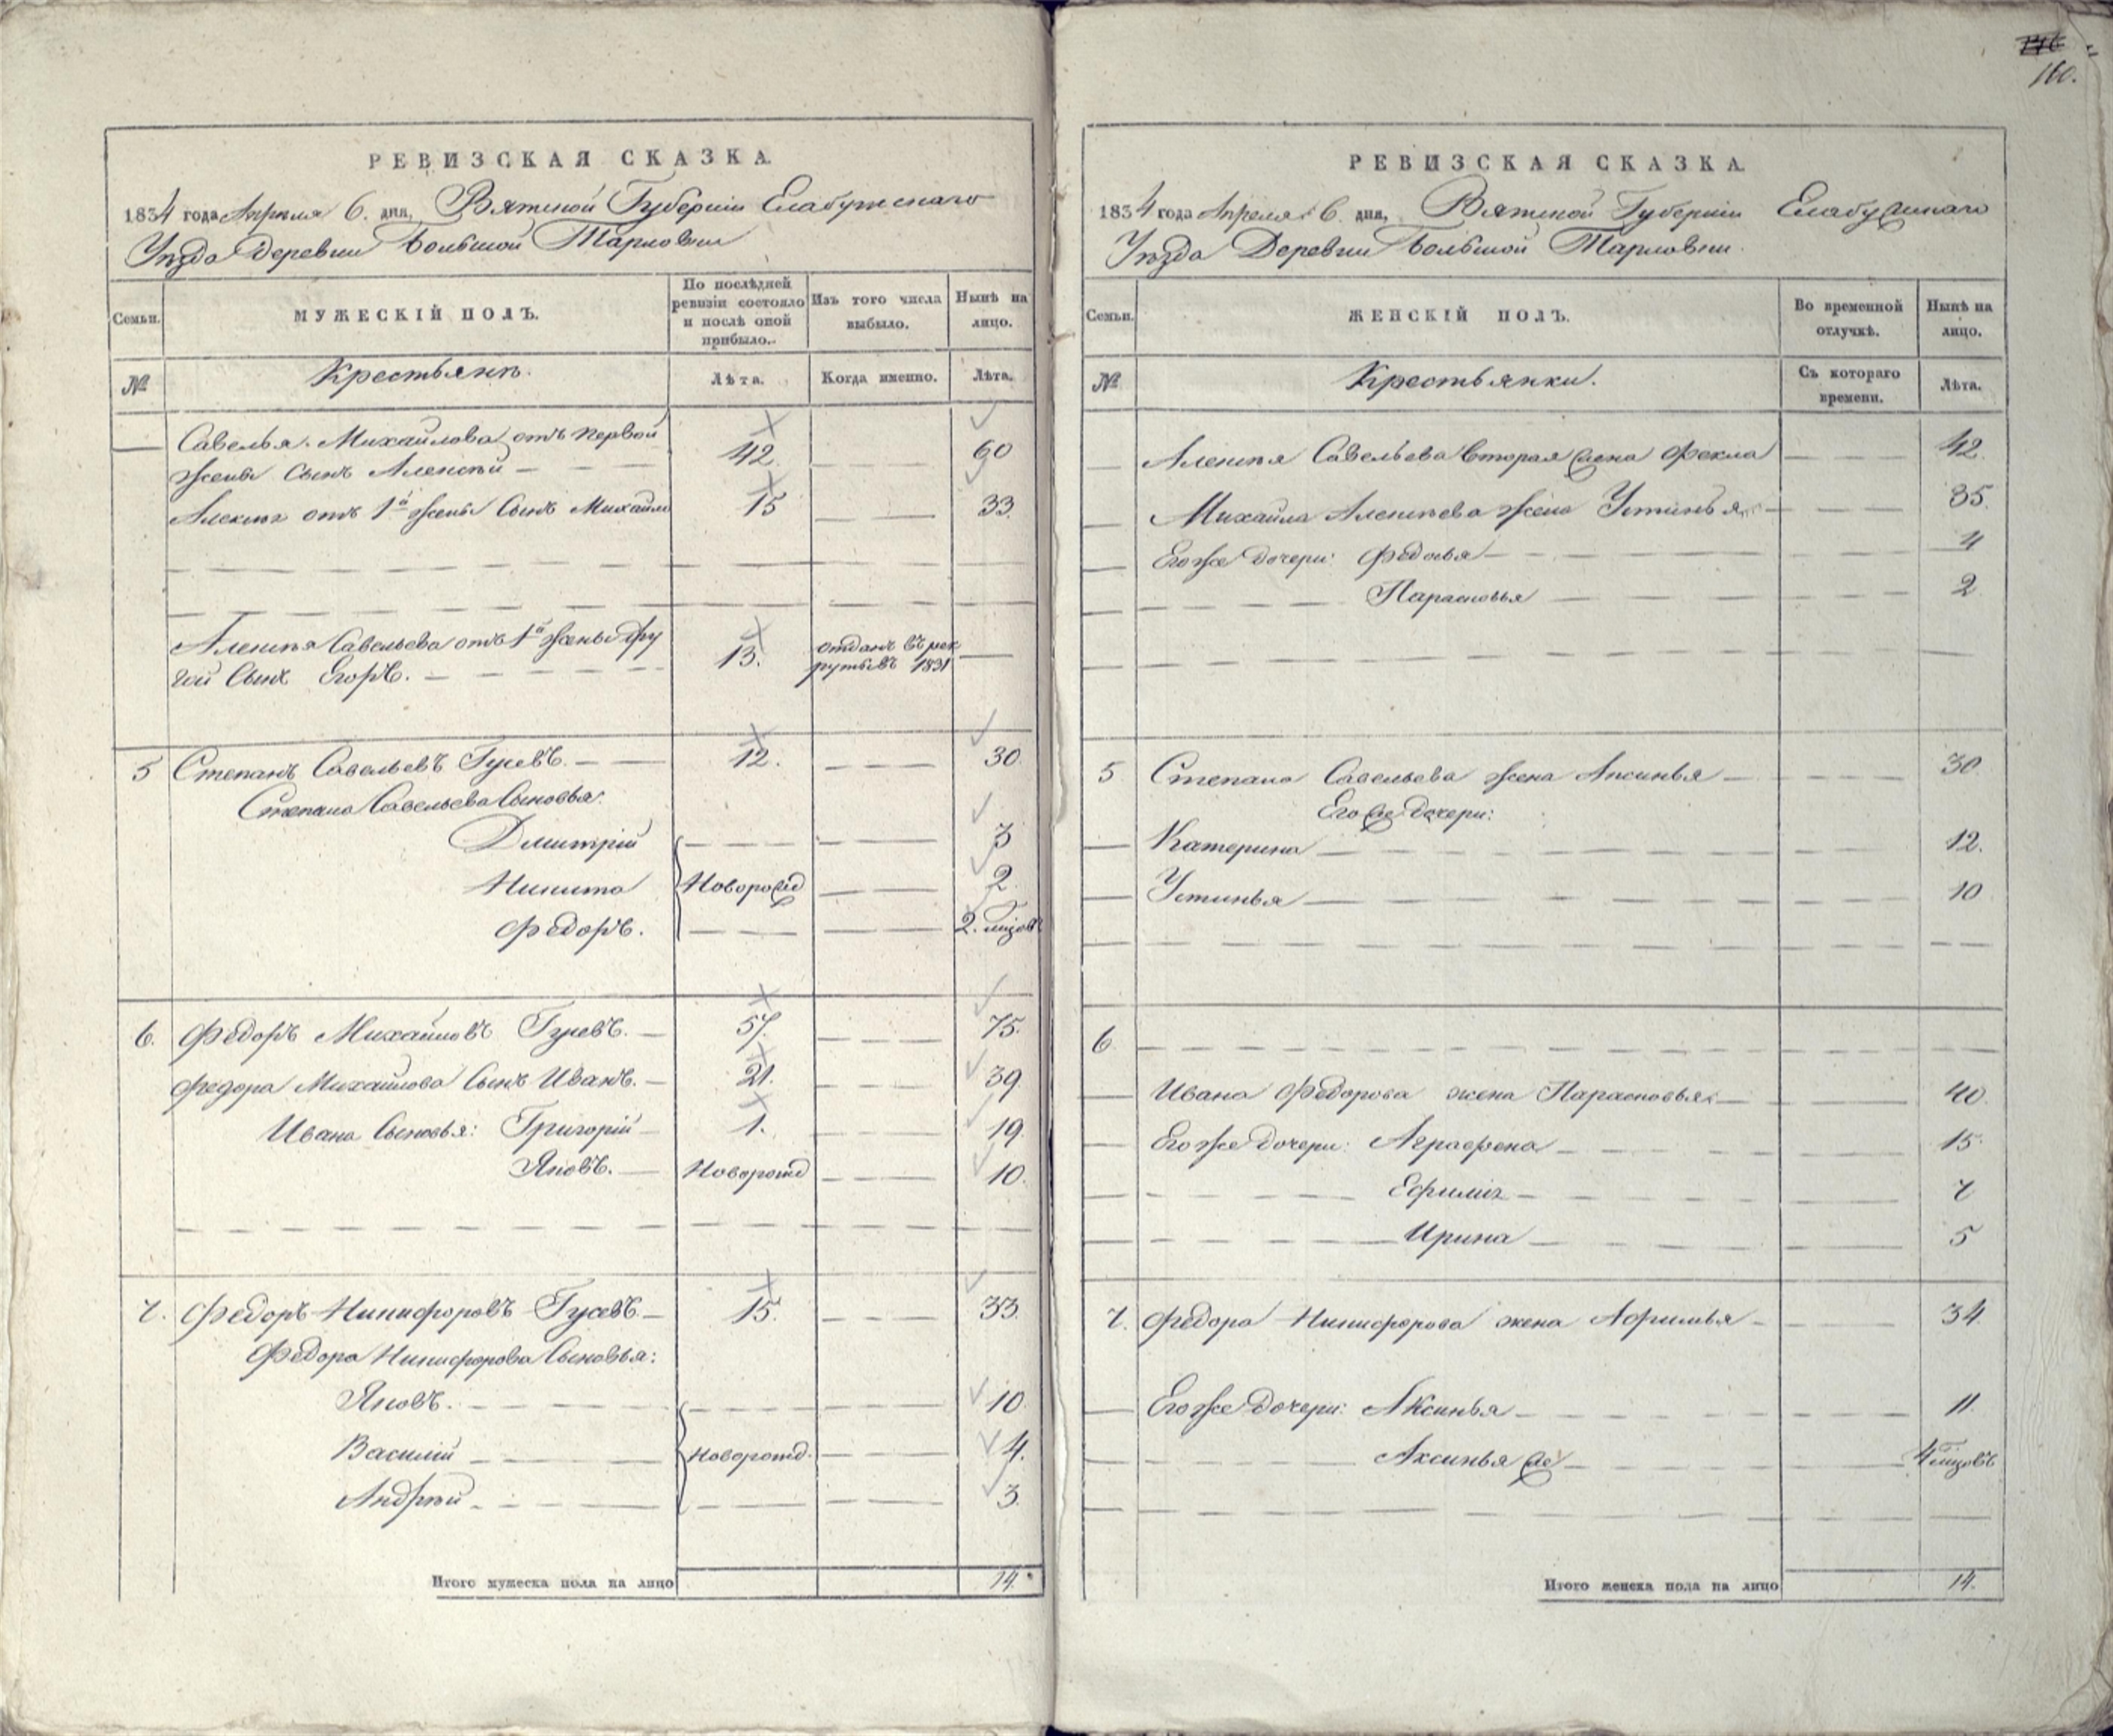 РЕВИЗСКАЯ СКАЗКА.
1834 года Апреля 6. дня, Вятской Губернiи Елабужскаго
Уѣзда Деревни Большой Тарловки
Семьи.
МУЖЕСКІЙ ПОЛЪ.
По послѣдней ревизіи состояло и послѣ оной прибыло.
Изъ того числа выбыло.
Нынѣ на лицо.
№
Крестьянъ.
Лѣта.
Когда именно.
Лѣта.
Савелья Михайлова отъ первой
жены сынъ Алексѣй 42 60
Алексѣя отъ 1й жены Сынъ Михайло 15 33
Алексѣя Савельева отъ 1й жены дру
гой Сынъ Егоръ. 13. отданъ въ рек
рутывъ 1831
5 Степанъ Савельевъ Гусевъ. 12. 30
Степана Савельева Сыновья:
Дмитрій 3
Никита Новорожд 2
Федоръ. 2. мѣсяц
6. Федоръ Михайловъ Гусевъ. 57. 75.
Федора Михайлова Сынъ Иванъ. 21. 39
Ивана Сыновья: Григорій 1. 19
Яковъ. Новорожд 10.
7. Федоръ Никифоровъ Гусевъ 15. 33
Федора Никифорова Сыновья:
Яковъ. 10
Василій Новорожд. 4.
Андрѣй 3.
Итого мужеска пола на лицо 14.
160.
РЕВИЗСКАЯ СКАЗКА.
1834 года Апреля 6. дня, Вятской Губерніи Елабужскаго
Уѣзда Деревни Большой Тарловки
Семьи.
ЖЕНСКІЙ ПОЛЪ.
Во временной отлучкѣ.
Нынѣ на лицо.
№
Крестьянки.
Съ котораго времени.
Лѣта.
Алексѣя Савельева вторая жена Фекла 42.
Михайла Алексѣева жена Устинья 35.
Егоже дочери: Федосья 4
Парасковья 2
5. Степана Савельева жена Аксинья 30
Егоже дочери:
Катерина 12.
Устинья 10
6
Ивана Федорова жена Парасковья 40.
Егоже дочери: Аграфена 15.
Ефимія 7
Ирина 5
7. Федора Никифорова жена Афимья 34
Егоже дочери: Аксинья 11
Аксинья же 4 мѣсяцовъ
Итого женска пола на лицо 14.